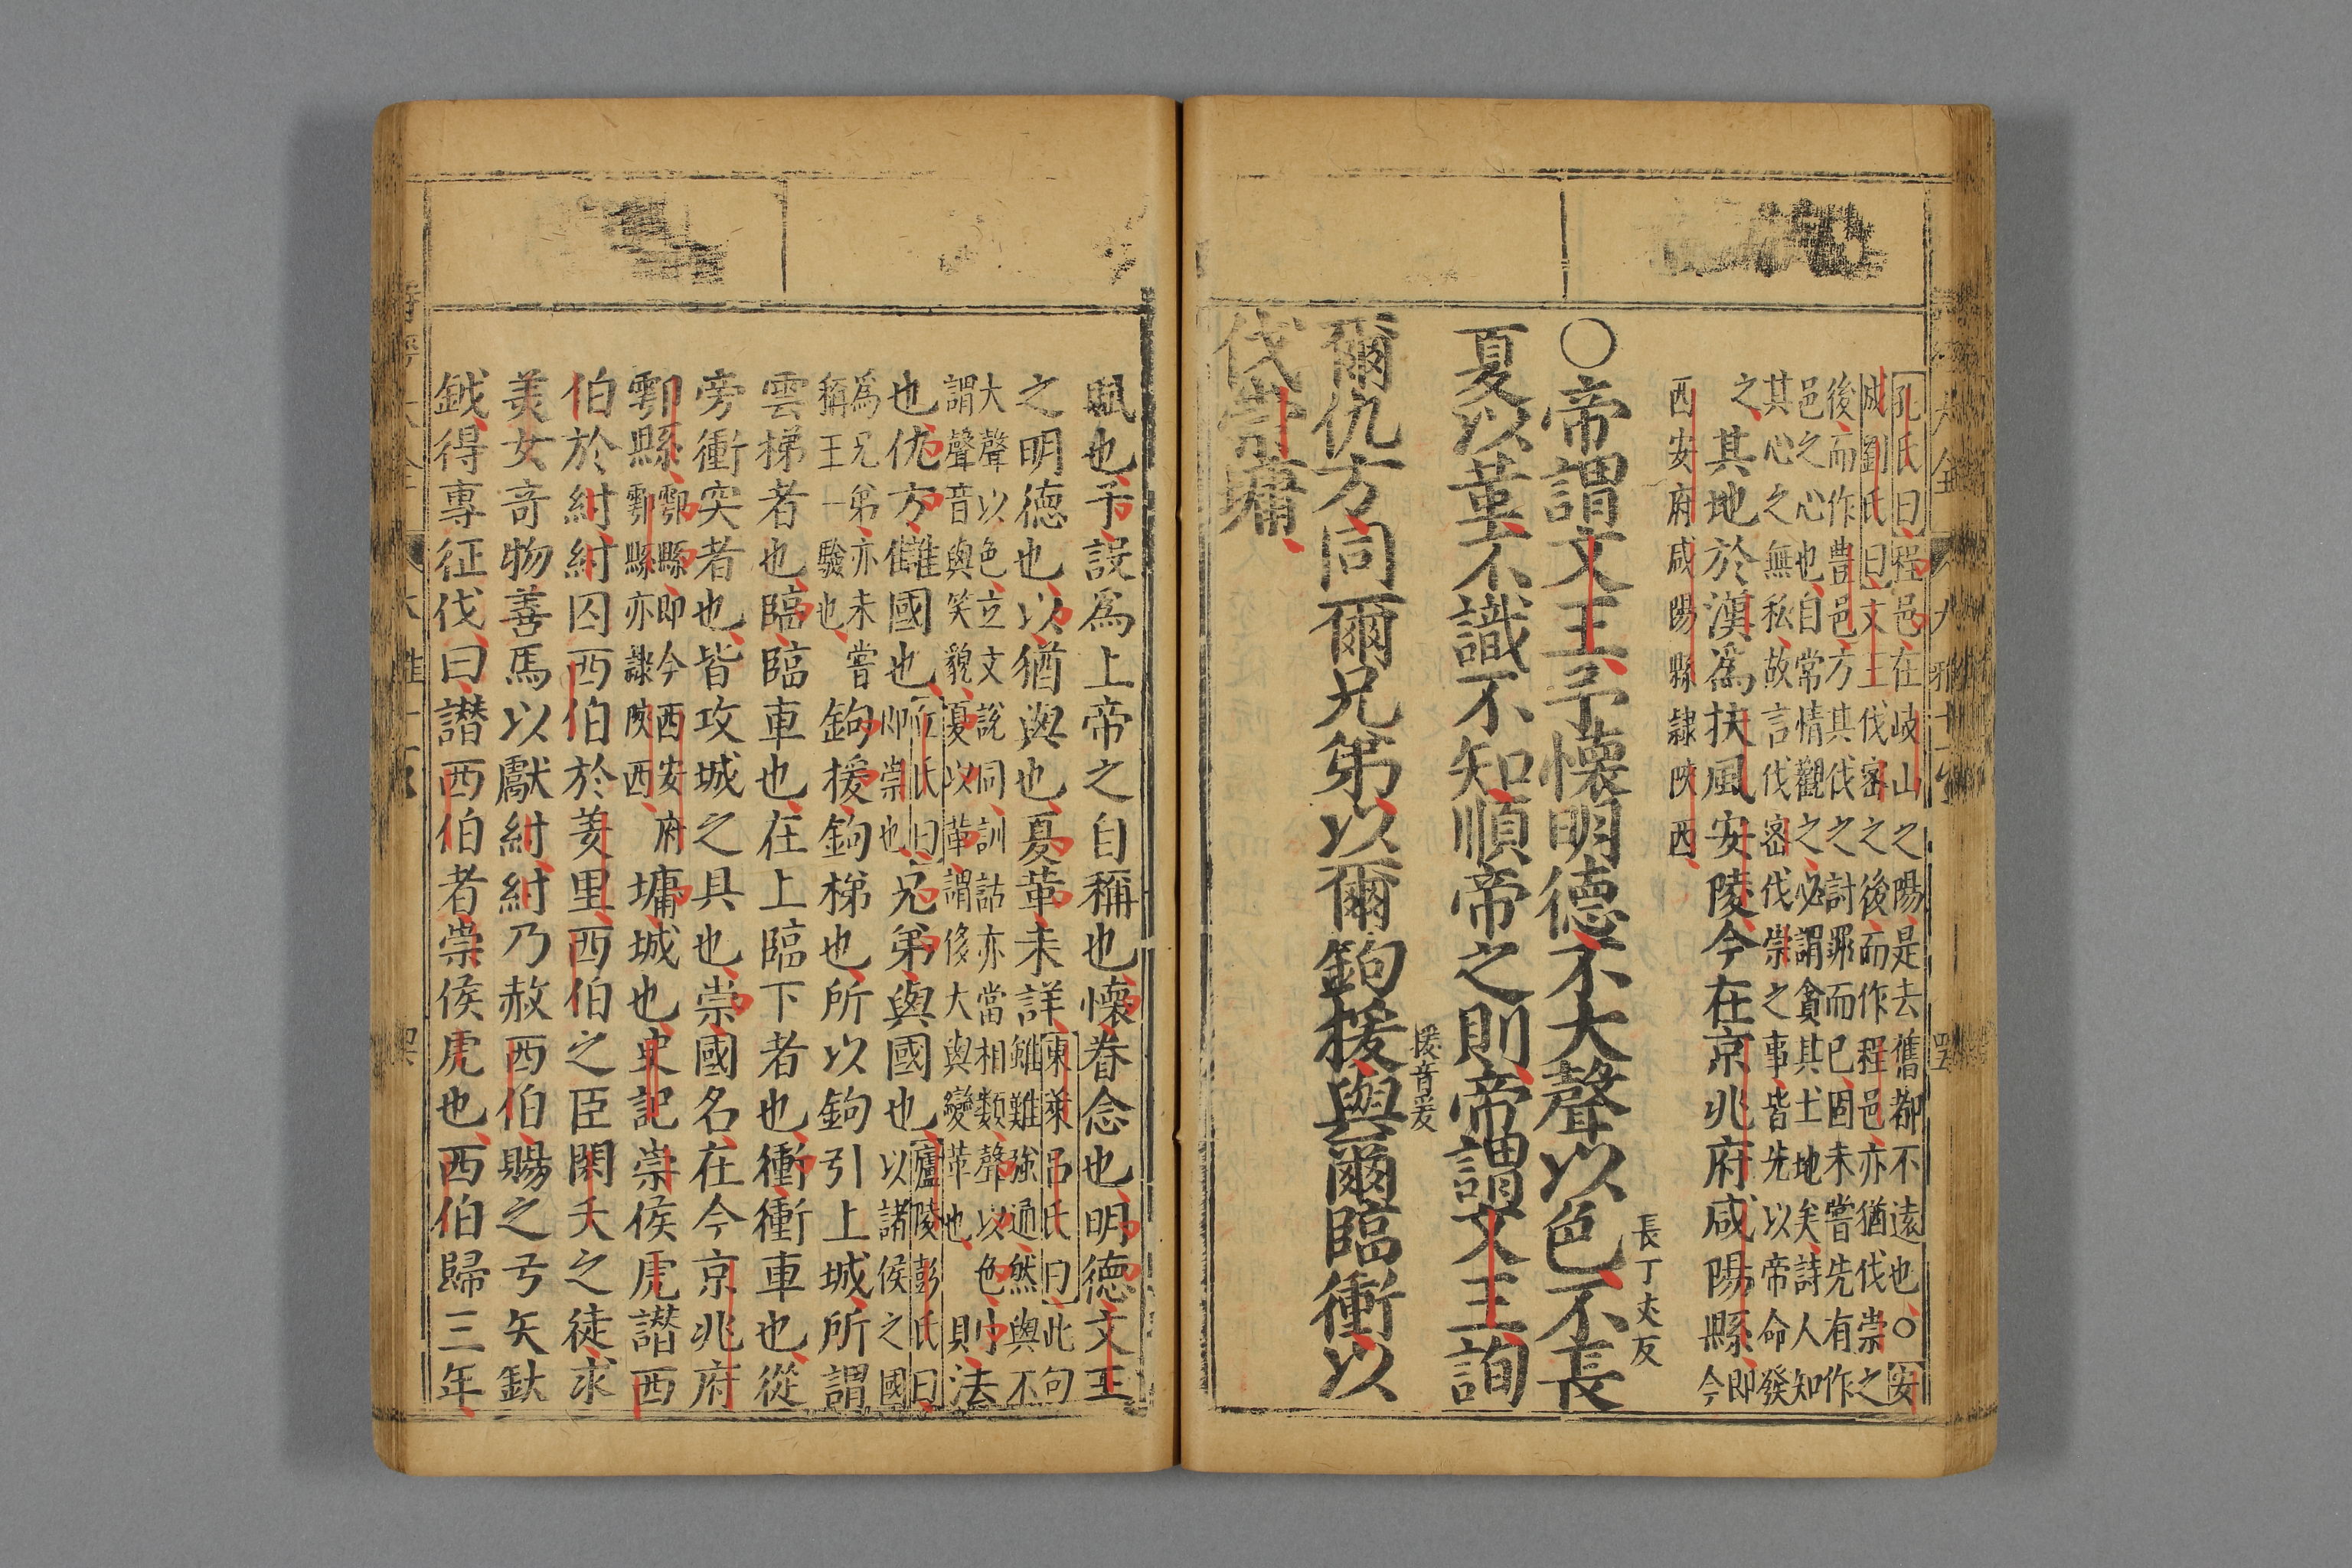 孔氏曰程邑在岐山之陽是去舊都不遠也○安
成劉氏曰文王伐密之後而作程邑亦猶伐崇之
後而作豊邑方其伐之討罪而已固未嘗先有作
邑之心也自常情觀之必謂貪其土地矣詩人知
其心之無私故言伐密伐崇之事皆先以帝命發
之其地於漢爲扶風安陵今在京兆府咸陽縣即今
西安府咸陽縣隷陝西
長丁丈反
○帝謂文王予懷明德不大聲以色不長
夏以革不識不知順帝之則帝謂文王詢
援音爰
爾仇方同爾兄弟以爾鉤援與爾臨衝以
伐崇墉
賦也予設爲上帝之自稱也懷眷念也明德文王
之明德也以猶與也夏革未詳東萊呂氏曰此句
雖難強通然與不
大聲以色立文說同訓詁亦當相類聲以色
謂聲音與笑貌夏以革謂侈大與變革也
則法
也仇方讎國也孔氏曰
即崇也
兄弟與國也廬陵彭氏曰
以諸侯之國
爲兄弟亦未嘗
稱王一驗也
鉤援鉤梯也所以鉤引上城所謂
雲梯者也臨臨車也在上臨下者也衝衝車也從
旁衝突者也皆攻城之具也崇國名在今京兆府
鄠縣鄠縣即今西安府
鄠縣亦隷陝西
墉城也史記崇侯虎譖西
伯於紂紂囚西伯於羑里西伯之臣閎夭之徒求
美女奇物善馬以獻紂紂乃赦西伯賜之弓矢鈇
鉞得專征伐曰譖西伯者崇侯虎也西伯歸三年